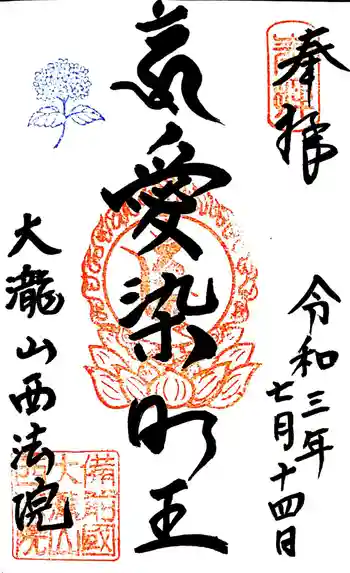 奉拝
令和三年
七月十四日
愛染明王
大瀧山西法院
備前國
大瀧山
西法院